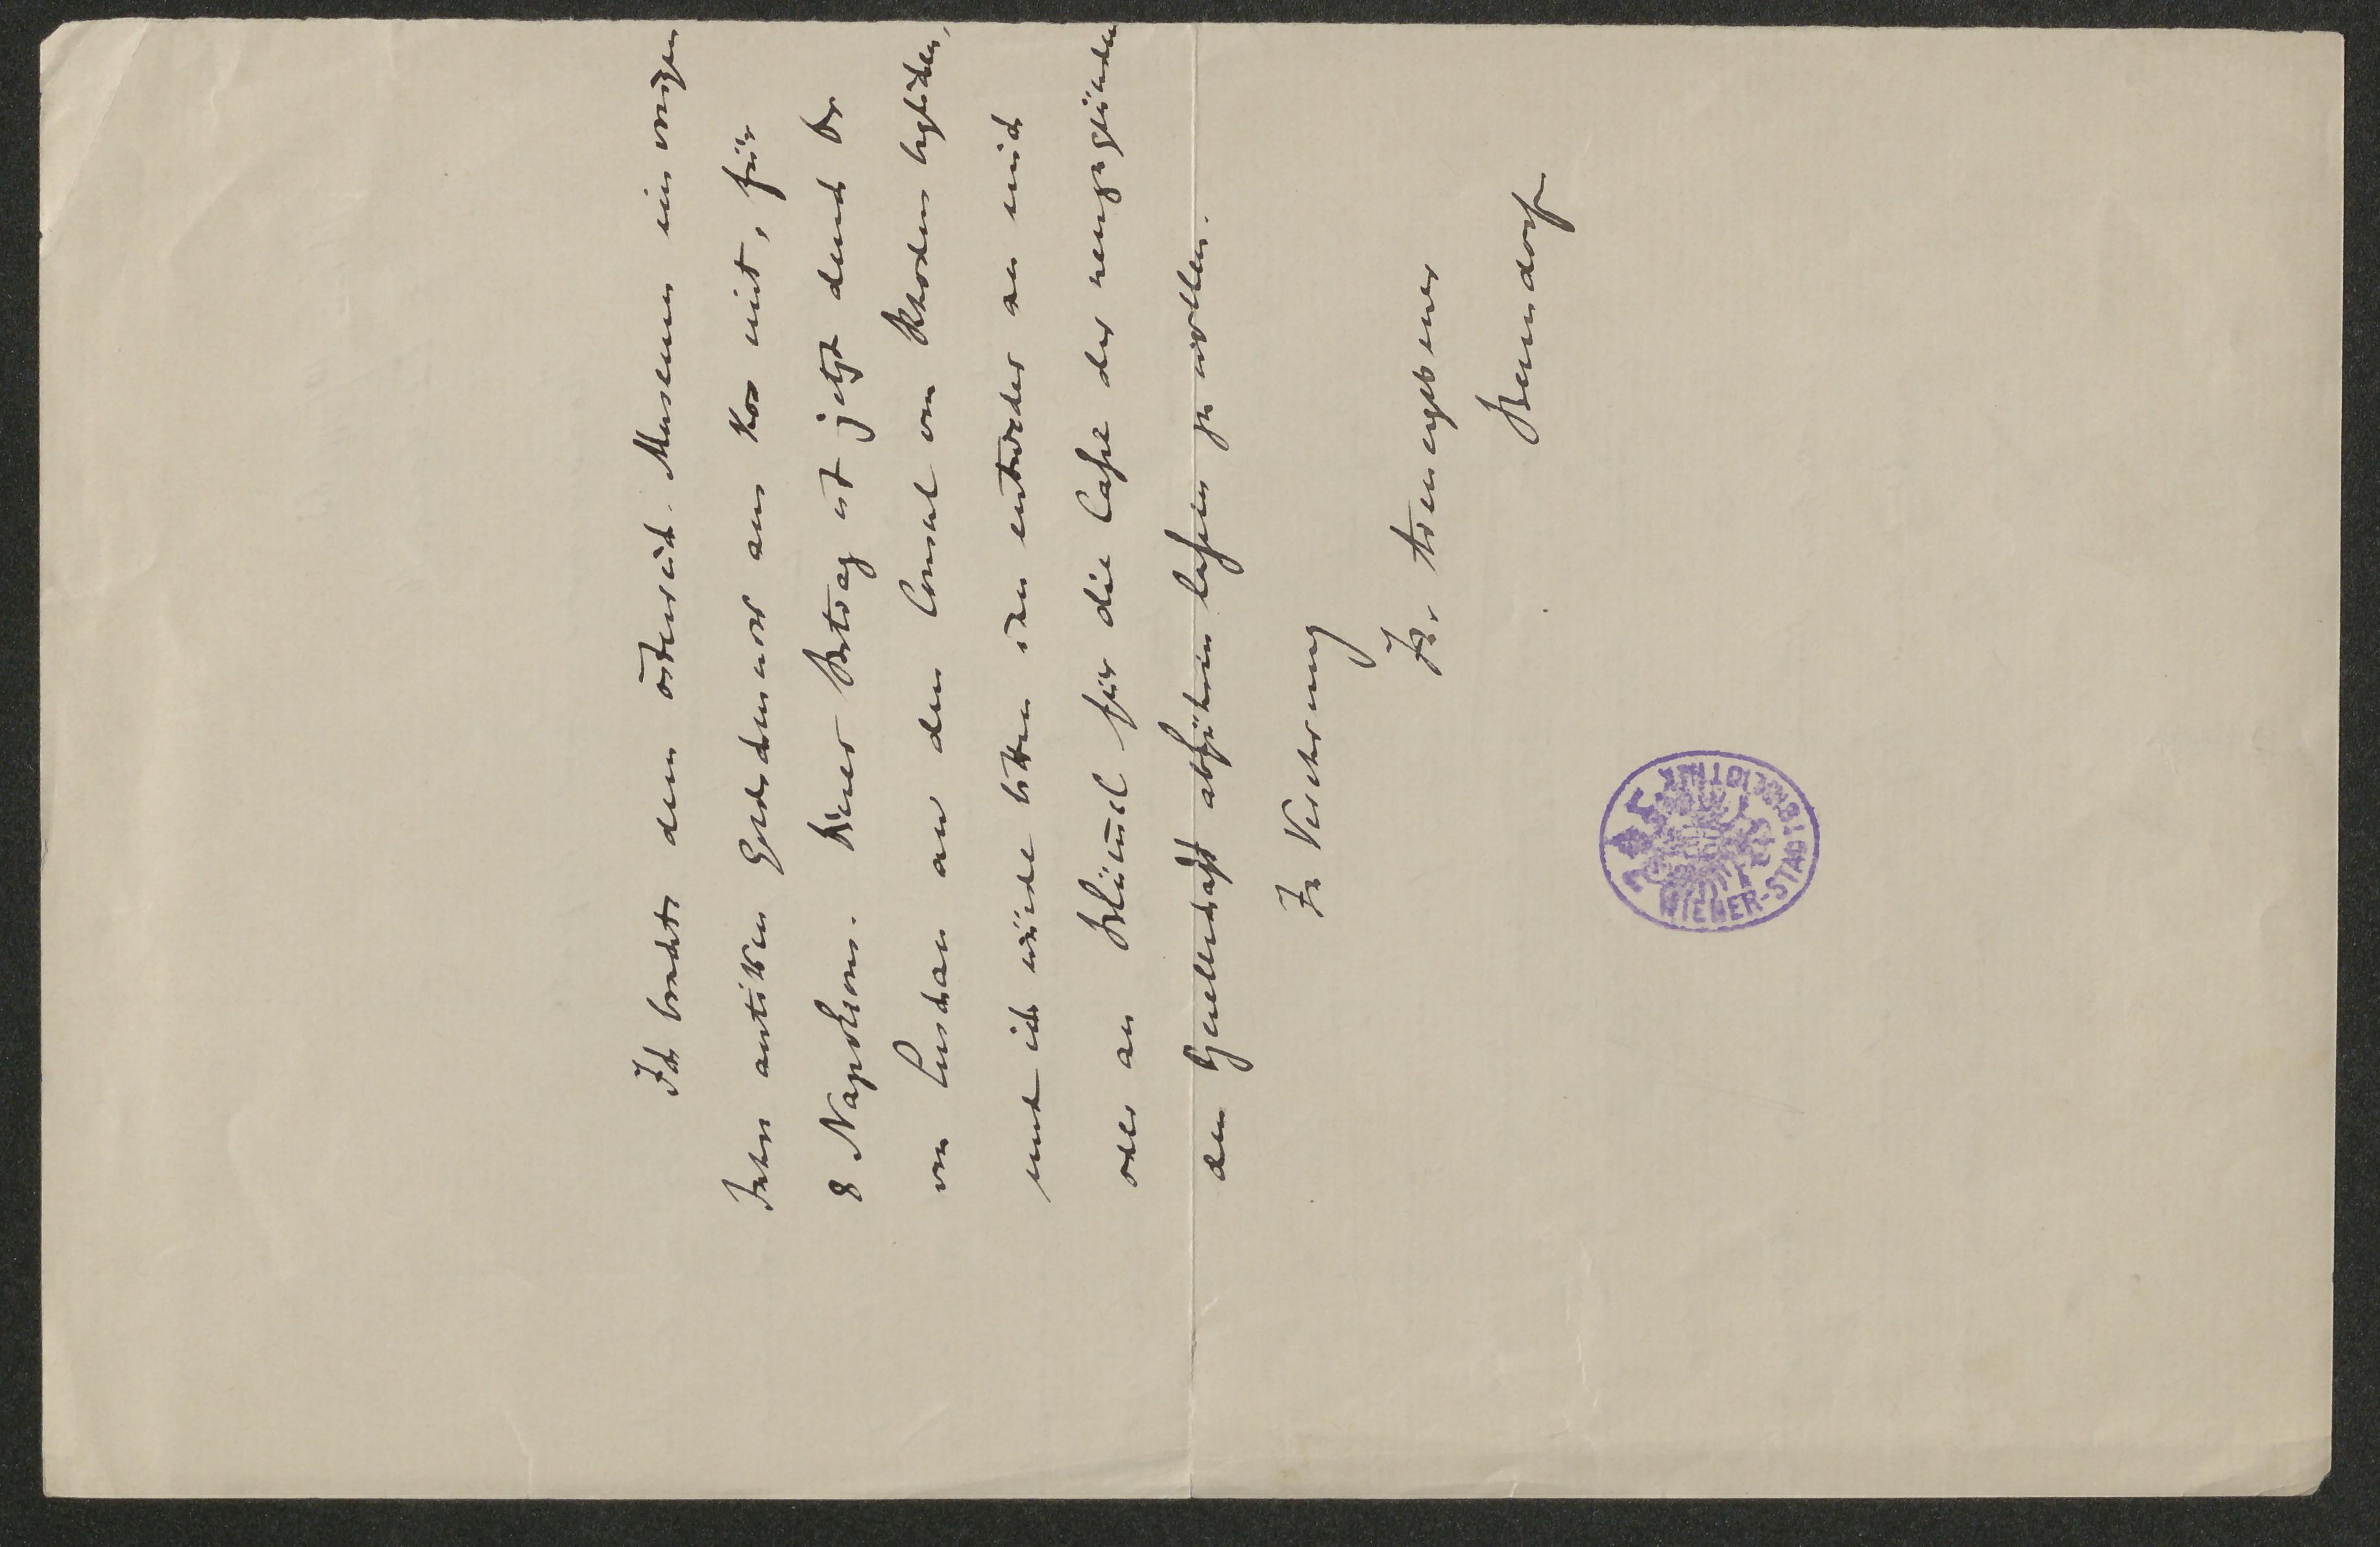 Ich brachte dem österreich. Museum im vorigen
Jahre antiken aus Kos mit, für
8 Napoleons. Dieser Betrag ist jetzt durch Dr
von Luschan an den Consul von Rhodus beglichen,
und ich würde bitten ihn entweder an mich
oder an für die Casse der neugegründeten
den Gesellschaft abführen lassen zu wollen.
In Verehrung
Ihr treu ergebener
Benndorf
WIENER-STADTBIBLIOTHEK